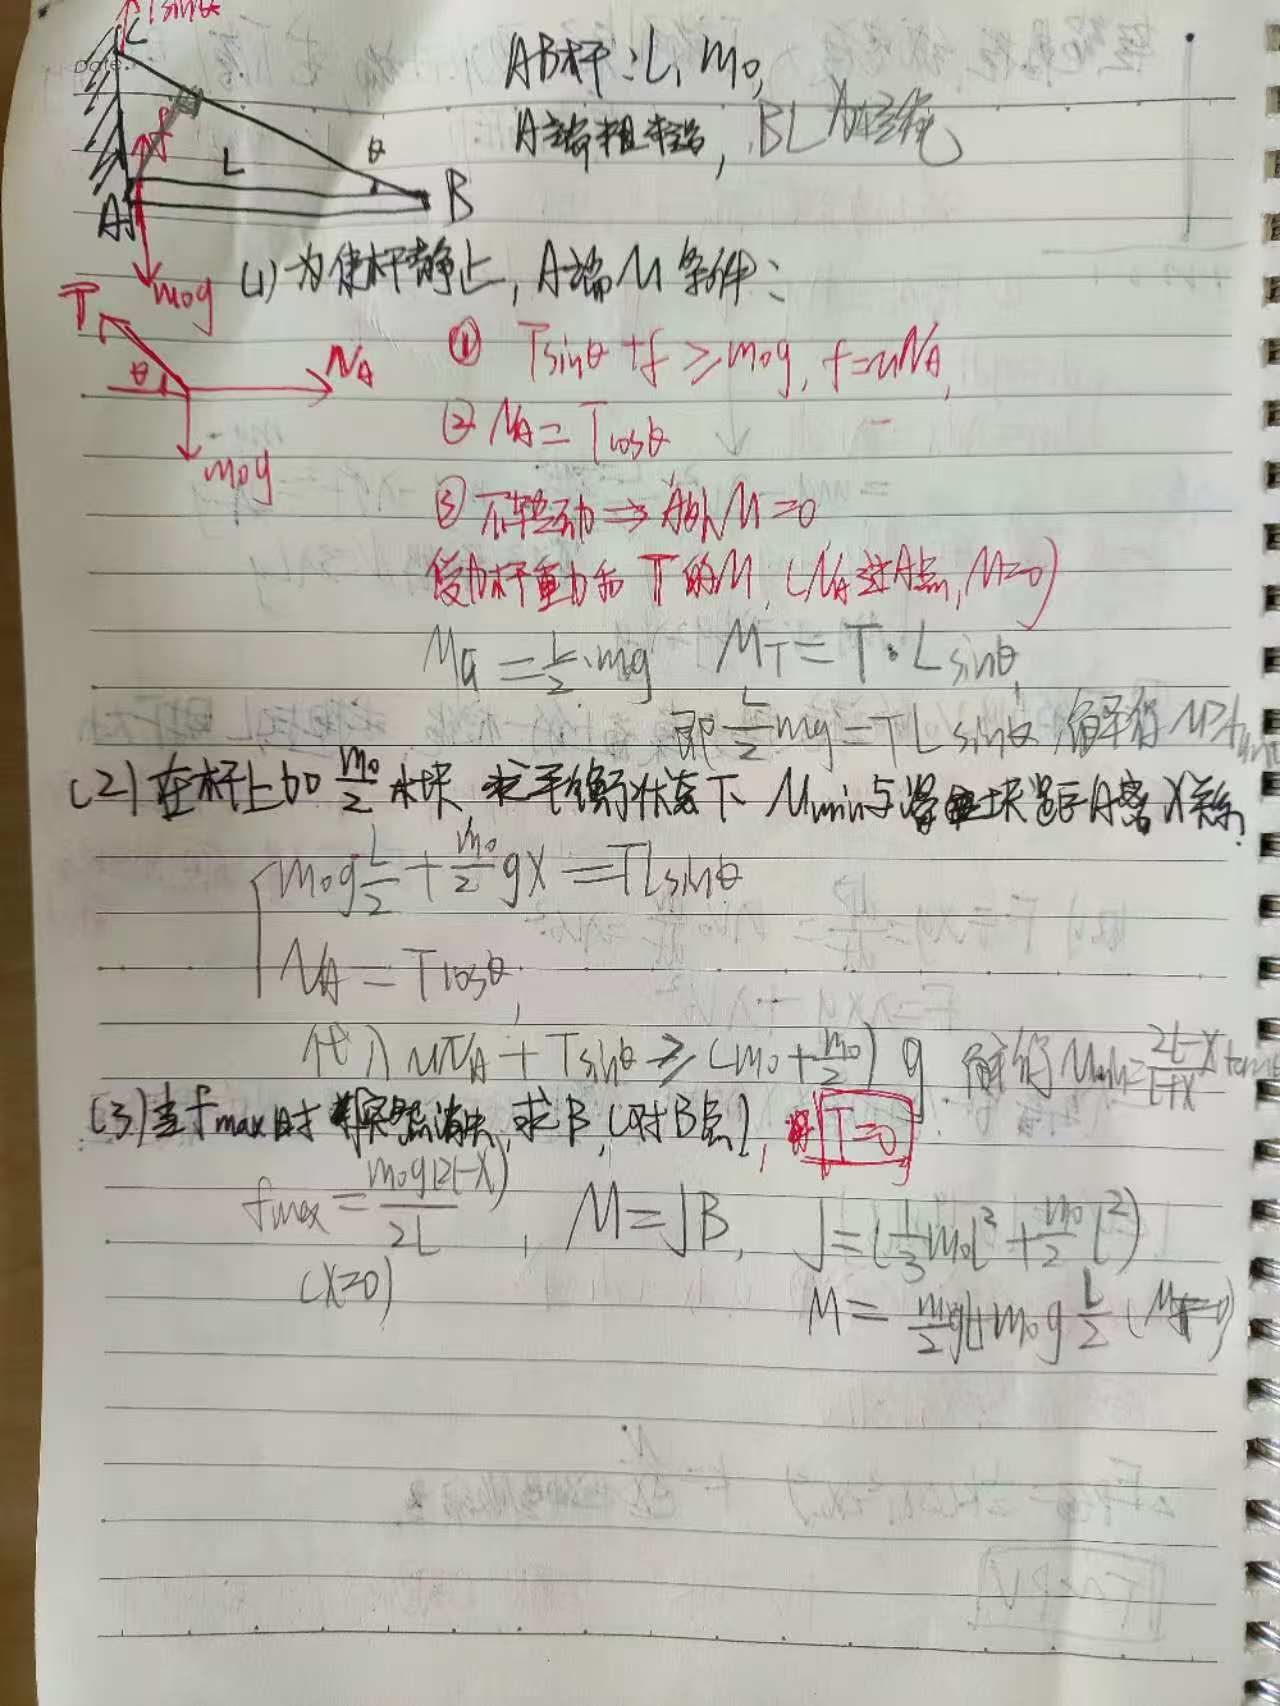 Tsinθ
C
AB杆：L, m₀,
A端粗糙, BC为轻绳
f
L
θ
A
B
m₀g
(1) 为使杆静止, A端μ条件：
T
θ
N_A
m₀g
① Tsinθ+f ≥ m₀g, f=μN_A,
② N_A = Tcosθ
③ 不转动 ⇒ A处M=0
仅为杆重力和T的M, (N_A过A点, M=0)
M_G = L/2·mg M_T = T·Lsinθ,
即 L/2 mg = TLsinθ 解得 μ≥tanθ
(2) 在杆上加 m₀/2 木块, 求平衡状态下 μmin与 块距A端x关系
{ m₀g L/2 + m₀/2 gx = TLsinθ
N_A = Tcosθ,
代入 μN_A + Tsinθ ≥ (m₀+m₀/2)g 解得μmin=(2L-x)/(L+x) tanθ
(3) 当fmax时 消失, 求β, (对B点), T=0
fmax = m₀g(2L-x)/2L, M=Jβ, J=(1/3 m₀L²+m₀/2 L²)
(x=0)
M = m₀/2 gL+m₀g L/2